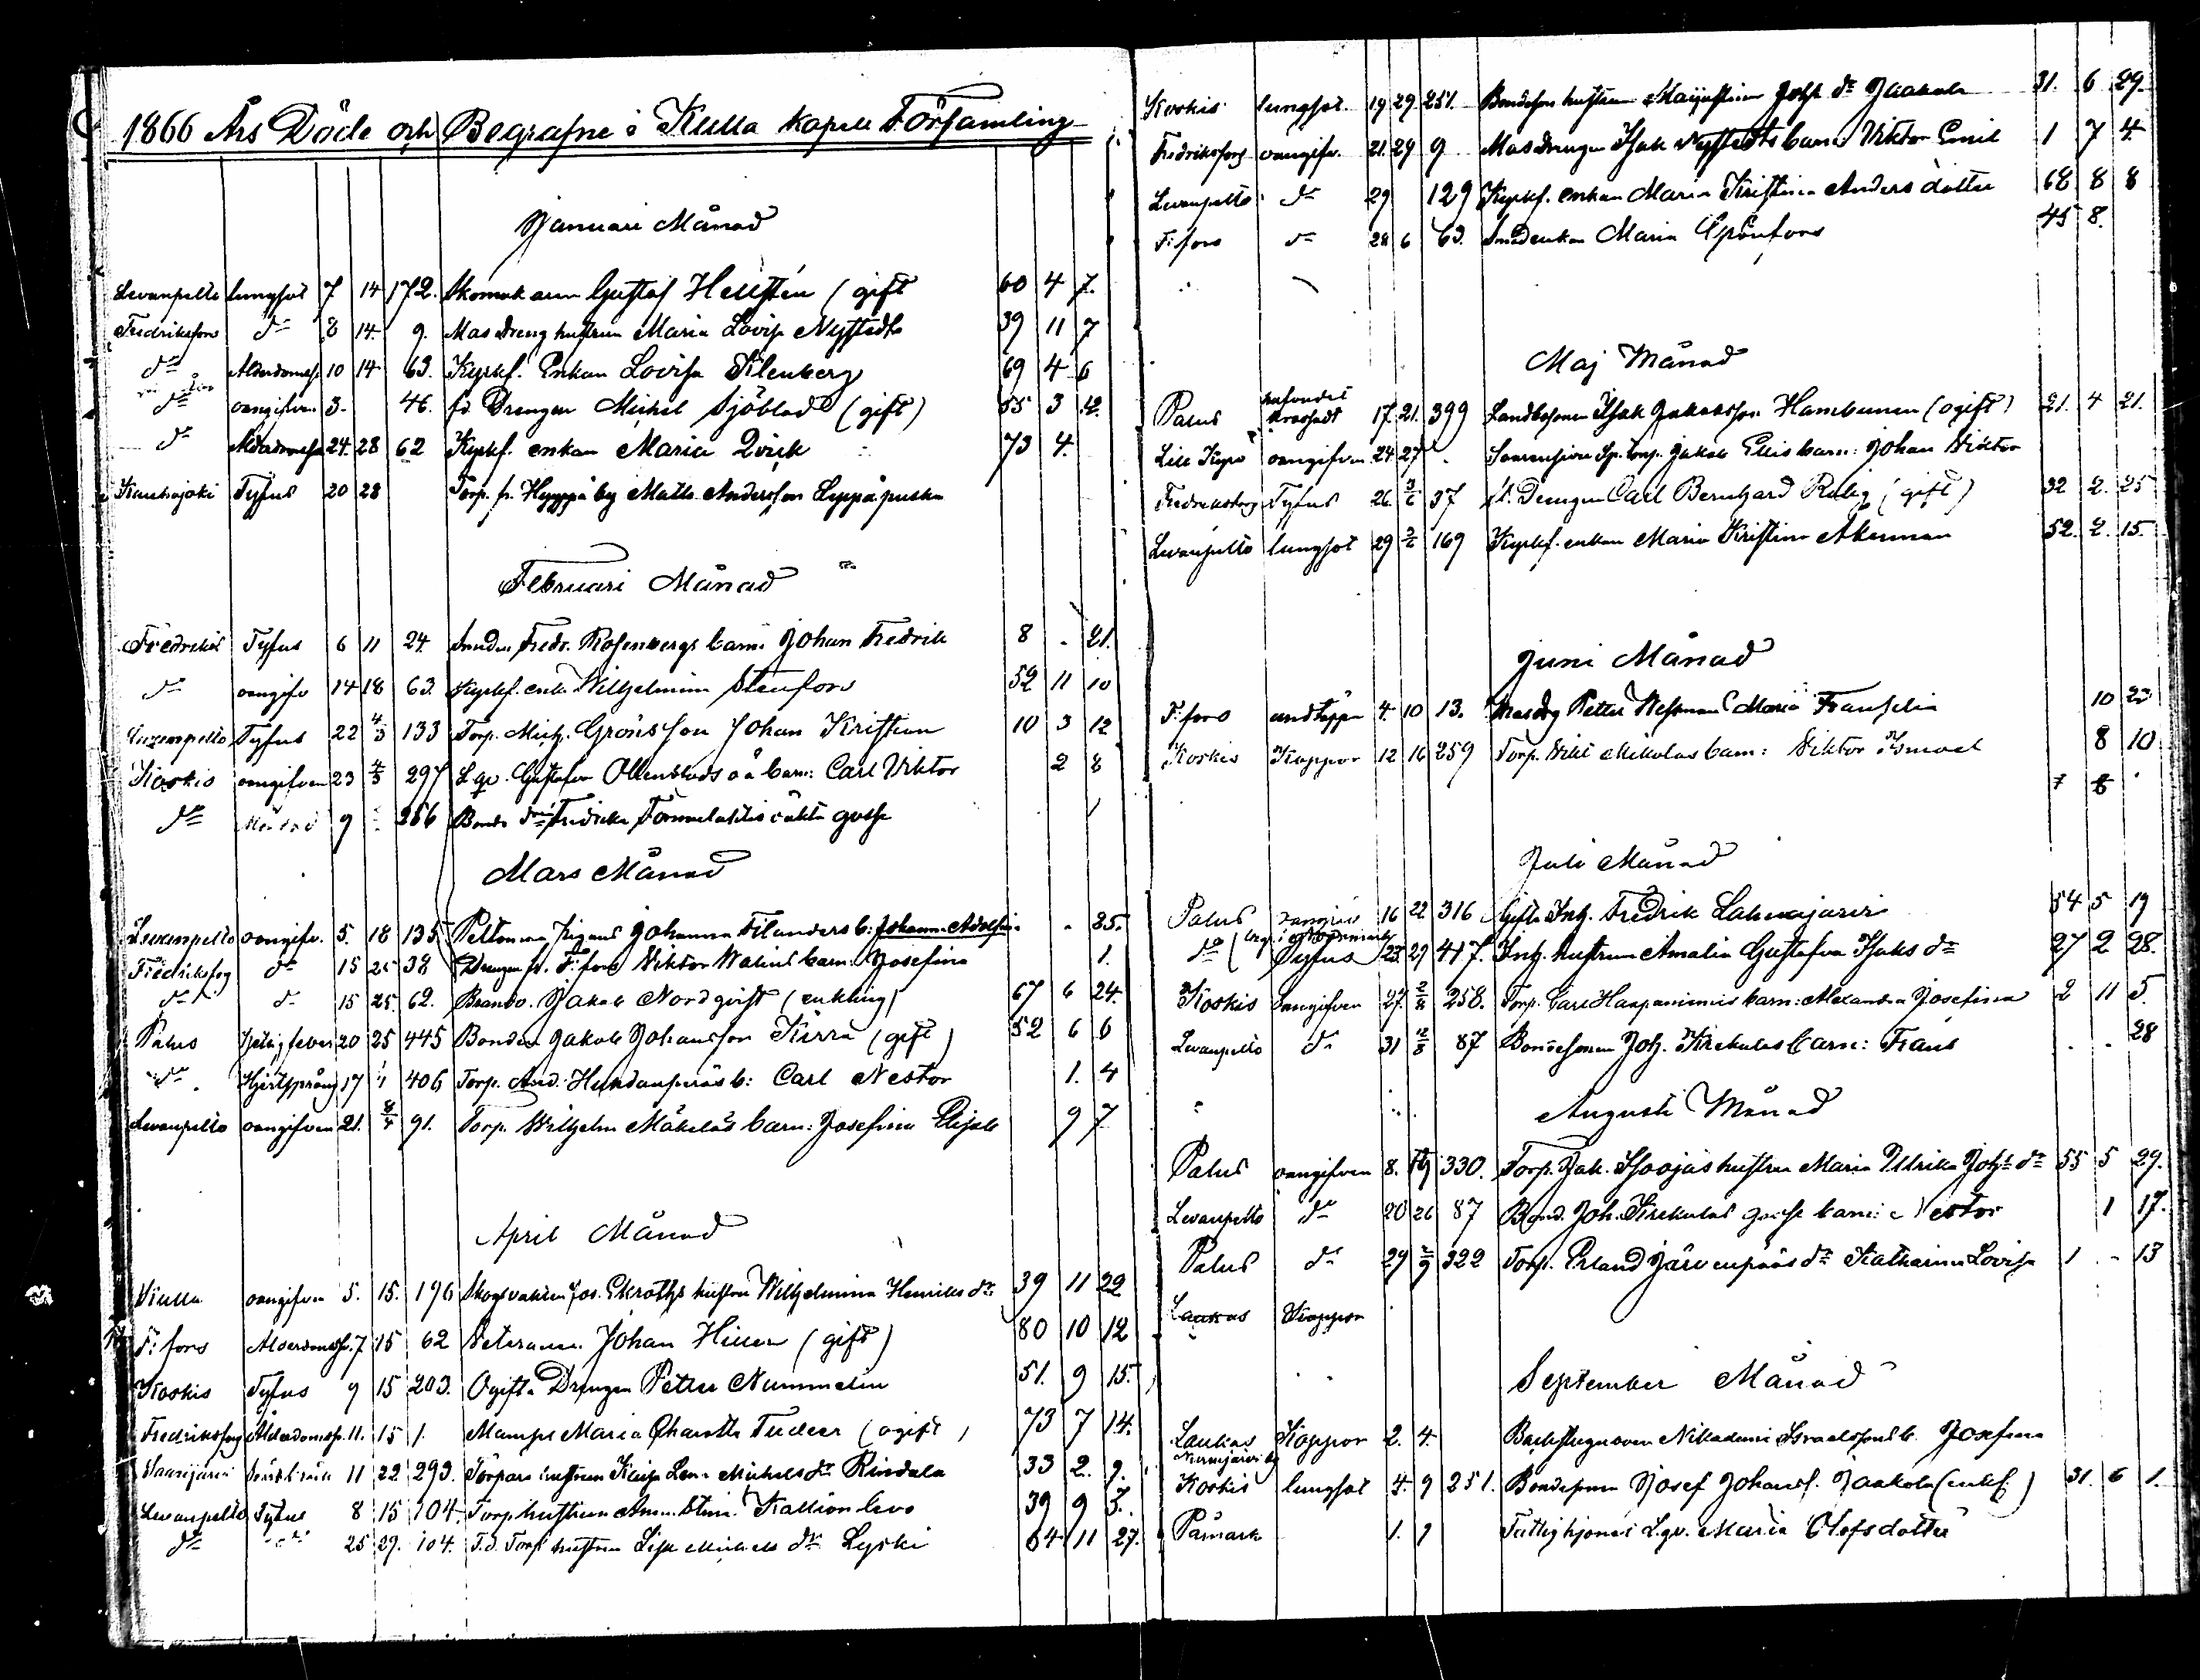 1866 Års Döde och Begrafne i Kulla kapell Församling
Januari Månad
Levanpelto lungsot 7 14 172. Skomakaren Gustaf Hellstén (gift 60 4 7.
Fredriksfors do 8 14. 9. Masdreng hustrun Maria Lovisa Nystedt 39 11 7
do Ålderdomssv 10 14 63. Kyrkf. Enkan Lovisa Klenberg 69 4 6
do oangifven 3. 46. fd Drengen Michel Sjöblad (gift) 55 3 12.
do Ålderdomssv 24. 28 62 Kyrkf. enkan Maria Qvick 73 4.
Kauhajoki Tyfus 20 28 Torp. fr. by Matts Andersson
Februari Månad
Fredriksf Tyfus 6 11 24. Fredr. Rosenbergs barn: Johan Fredrik 8 - 21.
do oangifv 14 18 63. Kyrkf. enk. Wilhelmina Stenfors 59 11 10
Levanpelto Tyfus 22 4/3 133 Torp. Mich. Gröns son Johan Kristian 10 3 12
Koskis oangifven 23 4/3 297 Lgv. Gustafva Ollenblads oä barn: Carl Viktor 2 8
do 9 266 Bonde dr: Fredrika oäkta gosse 1
Mars Månad
Levanpelto oangifv. 5. 18 135 Johanna Filanders b: Johanna Adolfina - 25.
Fredriksfog do 15 25 38 Drengen fr. F:fors Viktor Walins barn: Josefina 1.
do do 15 25. 62. Brandv. Jakob Nordqvist (enkling) 67 6 24.
Palus 20 25 445 Bonden Jakob Johansson Kirra (gift) 52 6 6
do Hjertsprång 17 1 406 Torp. And. b: Carl Nestor 1. 4
Levanpelto oangifven 21. 8/4 91. Torp. Wilhelm Mäkeläs barn: Josefina 9 7
April Månad
Kulla oangifven 5. 15. 196 Skogsvaktaren Jos. Ekroths hustru Wilhelmina Henriks dr 39 11 22
F:fors Ålderdomssv. 7 15 62 Veteranen Johan Hiller (gift) 80 10 12
Koskis Tyfus 9 15 203. Ogifta Drengen Petter Nummelin 51. 9 15.
Fredriksfog Ålderdomssv. 11. 15 1. Mamsel Maria Charlotta Tudeer (ogift) 73 7 14.
11 22 293. Torpare hustrun Kaisa Lena Michelsdr Rindala 33 2. 9.
Levanpelto Tyfus 8 15 104. Torp. hustrun Anna Stina 39 9 3.
do do 25 29. 104. F.d. Torp hustrun Lisa Michels dr Lyski 64 11 27.
Koskis lungsot. 19 29. 251. Bondeson hustrun Maijastina Johs dr Jaakola 31. 6 29.
Fredriksfog oangifv. 21. 29 9 Masdrengen Isak Nystedts barn: Viktor Emil 1 7 4.
Levanpelto do 29 129 Kyrkf. enkan Maria Kristina Anders dotter 68 8 8
F:fors do 28 6 63. Smedenkan Maria Grönfors 45 8.
Maj Månad
Palus 17. 21. 399 Landbosonen Isak Jakobsson (ogift) 21. 4 21.
Lill Kyro oangifven 24 27 barn: Johan Viktor
Fredriksfog Tyfus 26. 3/6 37 fd. Drengen Carl Bernhard (gift) 32 2. 25
Levanpelto lungsot 29 3/6 169 Kyrkf. enkan Maria Kristina Akerman 52. 2. 15.
Juni Månad
F:fors 4. 10 13. Masdrg Petter Maria Franselia 10 23
Koskis Koppor 12 16 259 Torp. Mikolas barn: Viktor Ismael 8 10
Juli Månad
Palus 16 22 316 Gifta Inh. Fredrik Lahnajärvi 54 5 19
do Tyfus 23. 29 417. Inh. hustrun Amalia Gustafva Isaks dr 27 2 28.
Koskis oangifven 27. 2/8 258. Torp. Carl Haapaniemis barn: Alexandra Josefina 2 11 5.
Levanpelto do 31 12/8 87 Bondesonen Joh. Kirkulas barn: Frans . . 28
Augusti Månad
Palus oangifven 8. 19 330. Torp. Jak. Isoojas hustrun Maria Ulrika Johs dr 55 5 29.
Levanpelto do 20 26 87 Bond. Joh. Kirkulas gosse barn: Nestor 1 17.
Palus do 29 2/9 322 Torp. Erland Järvenpääs dr Katharina Lovisa 1 - 13
Laukas Koppor
September Månad
Laukas Koppor 2. 4. Nikodemi Israelssons b. Josefina
Koskis lungsot 4. 9 251. Bondesonen Josef Johanss. Jaakola (enkl.) 31. 6 1.
Påmark 1. 9 Fattighjonet Lgv. Maria Olofsdotter